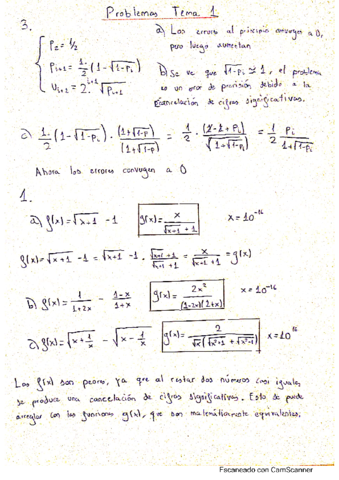 Problemas Tema 1
3.
P₂ = 1/2
P_{i+1} = 1/2 (1 - √(1-P_i))
U_{i+1} = 2^{i+1} √(P_{i+1})
a) Los errores al principio convergen a 0,
pero luego aumentan
b) Se ve que √(1-P_i) ≃ 1, el problema
es un error de precisión debido a la
cancelación de cifras significativas.
c) 1/2 (1 - √(1-P_i)) · (1+√(1-P_i))/(1+√(1-P_i)) = 1/2 · (1-1+P_i)/(1+√(1-P_i)) = 1/2 P_i/(1+√(1-P_i))
Ahora los errores convergen a 0
1.
a) f(x) = √(x+1) - 1 g(x) = x/(√(x+1) + 1) x = 10^{-16}
f(x) = √(x+1) - 1 = √(x+1) - 1 · (√(x+1) + 1)/(√(x+1) + 1) = x/(√(x+1) + 1) = g(x)
b) f(x) = 1/(1+2x) - (1-x)/(1+x) g(x) = 2x²/((1+2x)(1+x)) x = 10^{-16}
c) f(x) = √(x + 1/x) - √(x - 1/x) g(x) = 2/(√x(√(x²+1) + √(x²-1))) x = 10^{16}
Las f(x) son peores, ya que al restar dos números casi iguales
se produce una cancelación de cifras significativas. Esto se puede
arreglar con las funciones g(x), que son matemáticamente equivalentes.
Escaneado con CamScanner